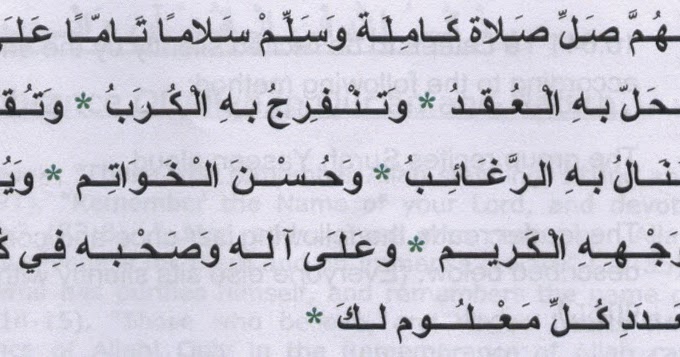 ـهُمَّ صَلِّ صَلَاةً كَامِلَةً وَسَلِّمْ سَلَامًا تَامًّا عَلَـ
ـحَلُّ بِهِ الْعُقَدُ * وَتَنْفَرِجُ بِهِ الْكُرَبُ * وَتُقْـ
ـنَالُ بِهِ الرَّغَائِبُ * وَحُسْنُ الْخَوَاتِمِ * وَيُـ
ـوَجْهِهِ الْكَرِيمِ * وَعَلَى آلِهِ وَصَحْبِهِ فِي كُـ
ـعَدَدِ كُلِّ مَعْلُومٍ لَكَ *